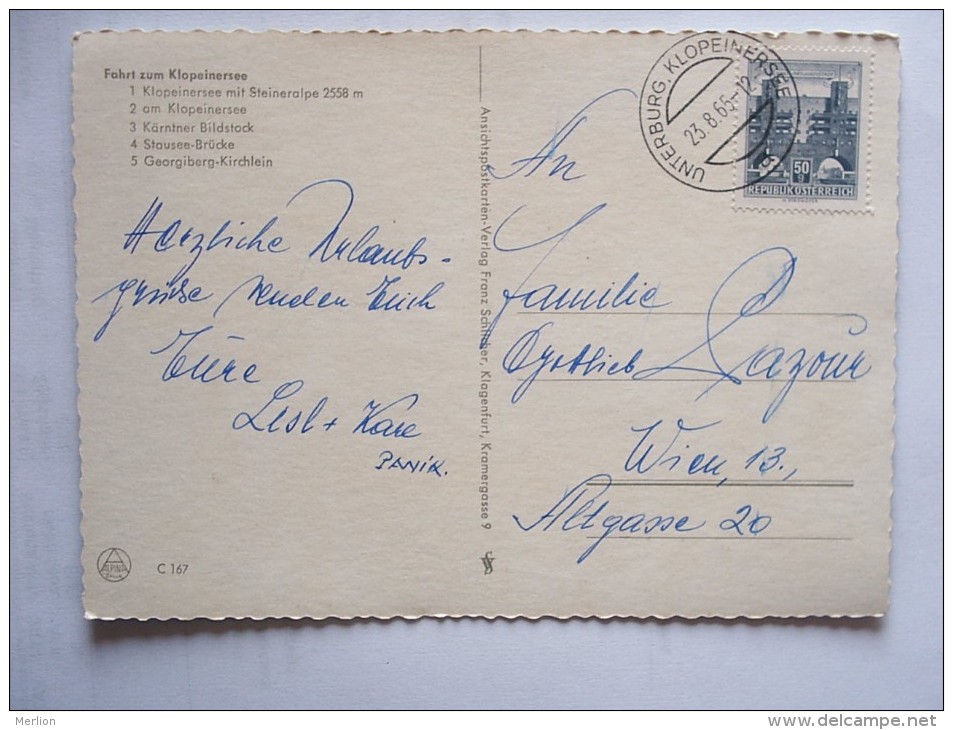 Fahrt zum Klopeinersee
1 Klopeinersee mit Steineralpe 2558 m
2 am Klopeinersee
3 Kärntner Bildstock
4 Stausee-Brücke
5 Georgiberg-Kirchlein
Herzliche Urlaubs-
grüße senden Euch
Eure
Lesl + Karl
PANIK.
ALPINA
C 167
Ansichtspostkarten-Verlag Franz Schilcher, Klagenfurt, Kramergasse 9
UNTERBURG, KLOPEINERSEE
23.8.65-12
50 g
REPUBLIK ÖSTERREICH
An
Familie
Gottlieb Lazour
Wien, 13.,
Altgasse 20
Merlion
delcampe.net